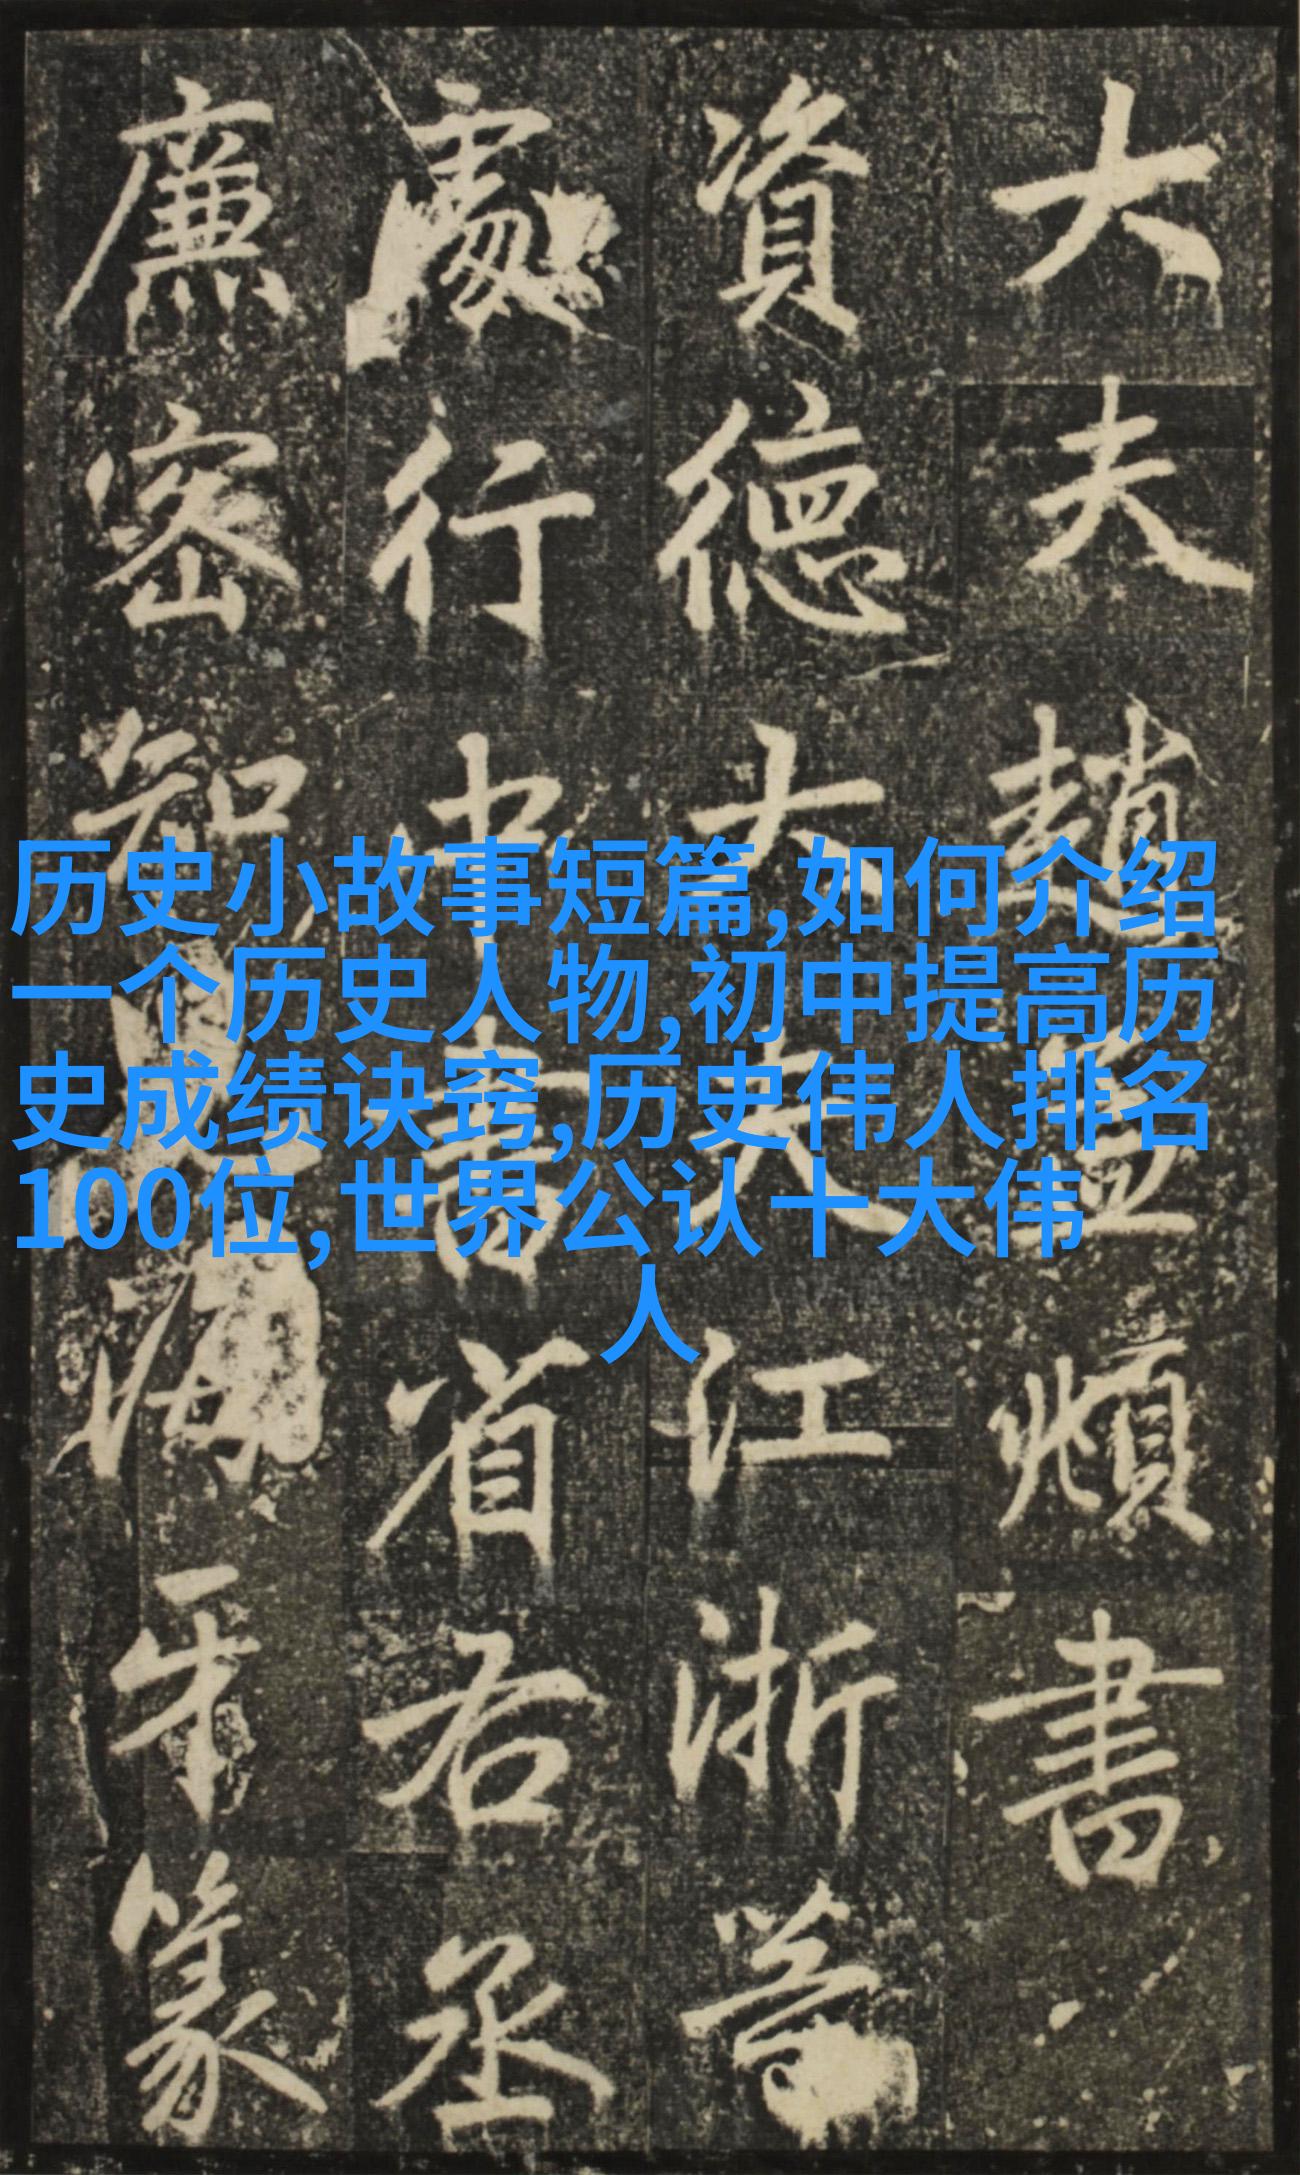 历史小故事短篇,如何介绍
一个历史人物,初中提高历
史成绩诀窍,历史伟人排名
100位,世界公认十大伟
人
大夫趙孟頫書
資德大夫江浙等
處行中書省右丞
廉密知海牙篆